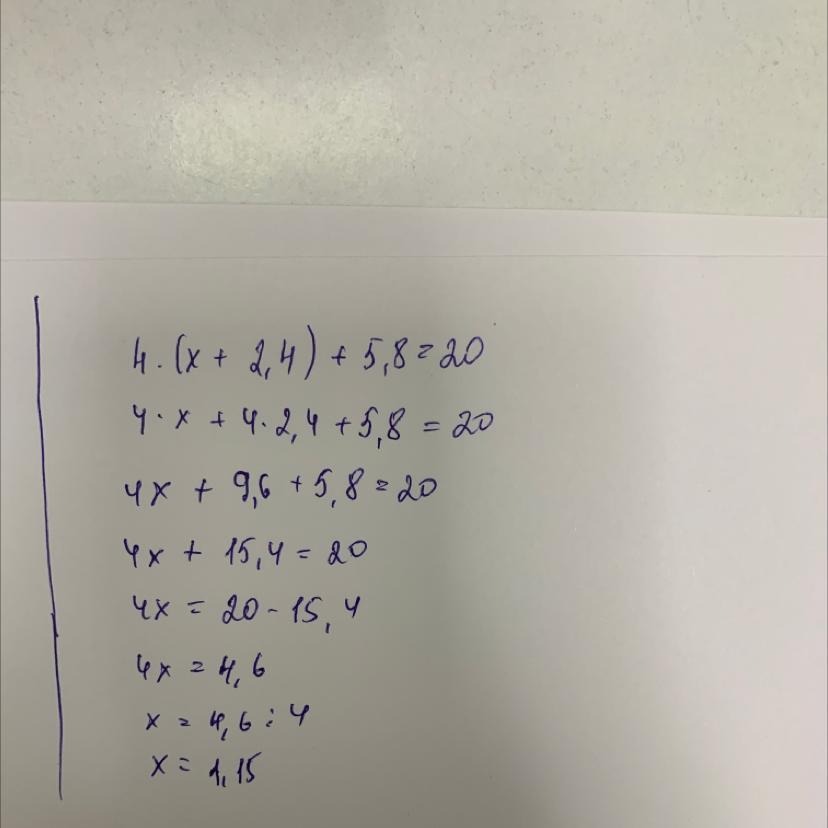 4 · (x + 2,4) + 5,8 = 20
4 · x + 4 · 2,4 + 5,8 = 20
4x + 9,6 + 5,8 = 20
4x + 15,4 = 20
4x = 20 - 15,4
4x = 4,6
x = 4,6 : 4
x = 1,15